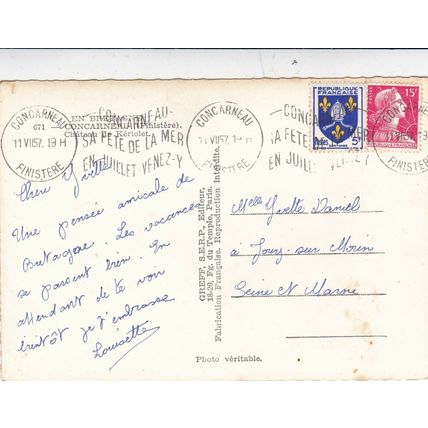 CONCARNEAU
11 VII 57. 19 H
FINISTERE
CONCARNEAU
SA FÊTE DE LA MER
EN JUILLET-VENEZ-Y
CONCARNEAU
11 VII 57. 19 H
FINISTERE
CONC
SA FETE MER
EN JUILL VENEZ-Y
671 EN BRETAGNE
CONCARNEAU (Finistère).
Château de Kériolet.
REPUBLIQUE
FRANÇAISE
5F
15F
Chère Yvette
Une pensée amicale de
Bretagne. Les vacances
se passent bien. En
attendant de te voir
bientôt je t'embrasse
Louisette
GREFF, S.E.R.P., Editeur,
18-20, Fg. du Temple, Paris.
Fabrication Française Reproduction interdite.
Melle Yvette Daniel
à Jouy-sur-Morin
Seine et Marne
Photo véritable.